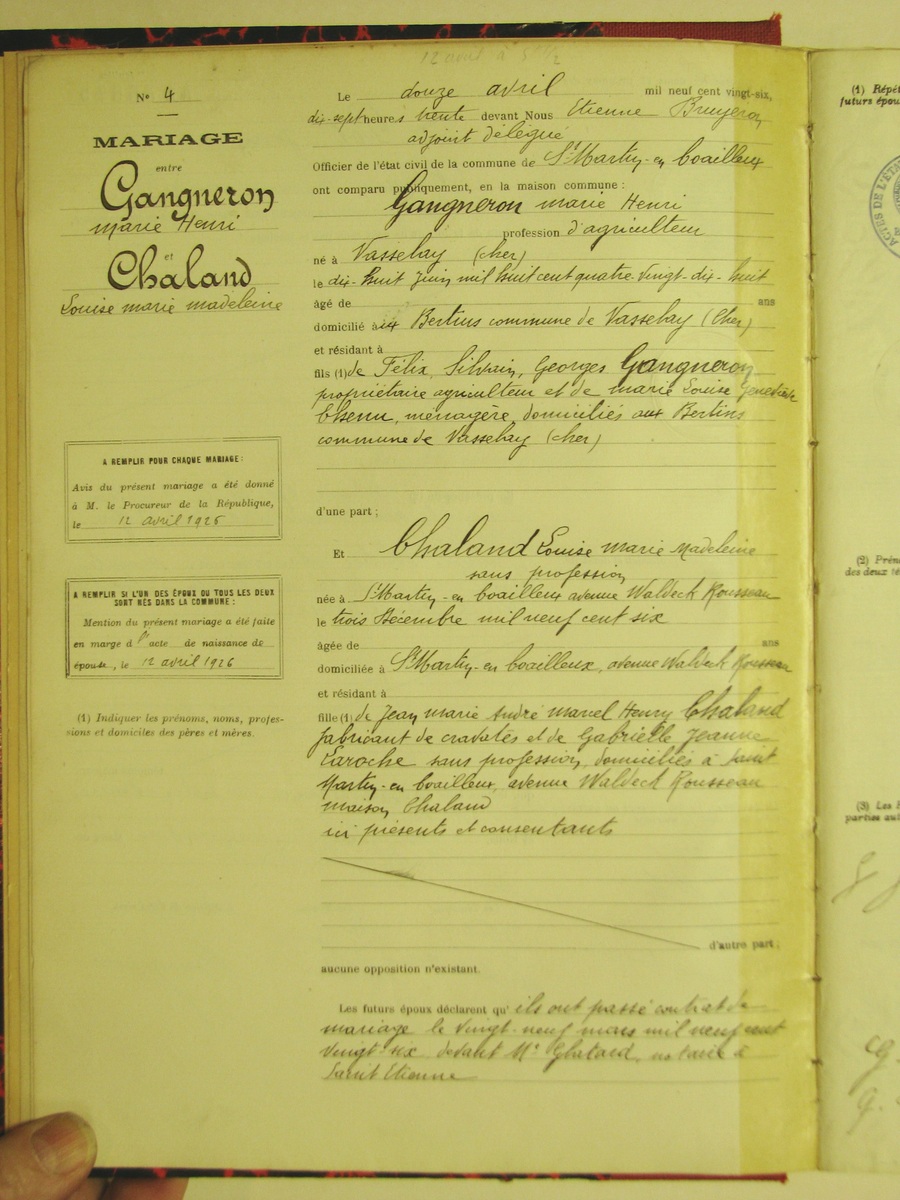 12 avril à 5h 1/2
N° 4
MARIAGE
entre
Gangneron
marie Henri
et
Chaland
Louise marie madeleine
A REMPLIR POUR CHAQUE MARIAGE:
Avis du présent mariage a été donné
à M. le Procureur de la République,
le 12 avril 1926
A REMPLIR SI L'UN DES ÉPOUX OU TOUS LES DEUX
SONT NÉS DANS LA COMMUNE:
Mention du présent mariage a été faite
en marge d l' acte de naissance de
épouse, le 12 avril 1926
(1) Indiquer les prénoms, noms, profes-
sions et domiciles des pères et mères.
Le douze avril mil neuf cent vingt-six,
dix-sept heures trente devant Nous Etienne Bruyeron
adjoint délégué
Officier de l'état civil de la commune de St Martin-en Coailleux
ont comparu publiquement, en la maison commune:
Gangneron marie Henri
profession d'agriculteur
né à Vasselay (cher)
le dix-huit Juin mil huit cent quatre-vingt-dix-huit
âgé de ans
domicilié aux Bertins commune de Vasselay (Cher)
et résidant à
fils (1) de Félix, Silvain, Georges Gangneron
propriétaire agriculteur et de marie Louise Geneviève
Chenu, ménagère, domiciliés aux Bertins
commune de Vasselay (cher)
d'une part;
Et Chaland Louise marie Madeleine
sans profession
née à St Martin-en Coailleux avenue Waldeck Rousseau
le trois Décembre mil neuf cent six
âgée de ans
domiciliée à St Martin-en Coailleux, avenue Waldeck Rousseau
et résidant à
fille (1) de Jean marie André marcel Henry Chaland
fabricant de cravates et de Gabrielle Jeanne
Laroche sans profession, domiciliés à Saint
Martin-en Coailleux, avenue Waldeck Rousseau
maison Chaland
ici présents et consentants
d'autre part;
aucune opposition n'existant.
Les future époux déclarent qu' ils ont passé contrat de
mariage le vingt-neuf mars mil neuf cent
vingt-six devant Me Ghatard, notaire à
Saint Etienne
(1) Répét
futurs épou
ACTES DE L'ÉTA
(2) Prén
des deux té
(3) Les
parties aut